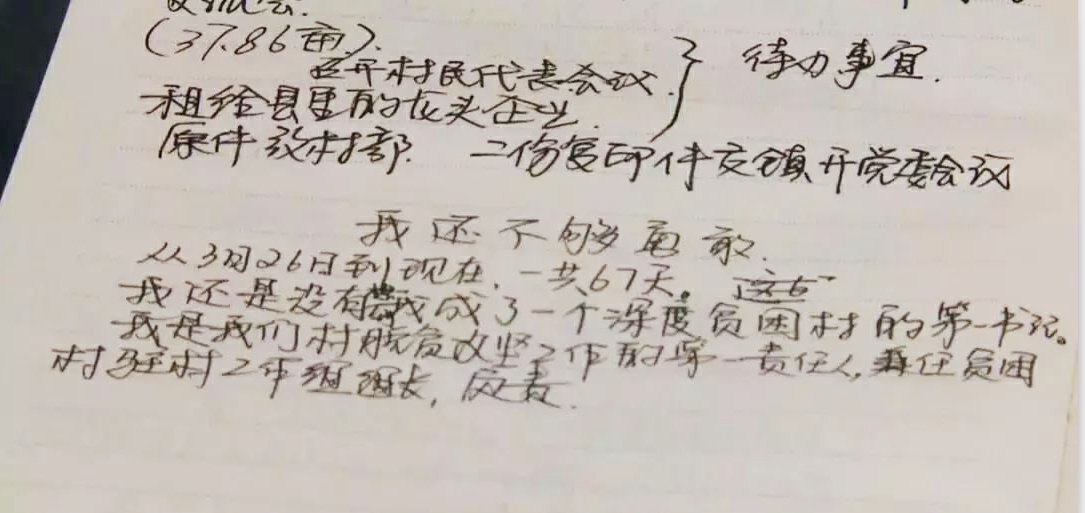 (37.86亩).
召开村民代表会议. } 待办事宜.
租给县里的龙头企业.
原件放村部. 二份复印件交镇开党委会议
我还不够勇敢.
从3月26日到现在,一共67天。这67
我还是没有 我成了一个深度贫困村的第一书记。
我是我们村脱贫攻坚工作的第一责任人,兼任贫困
村驻村工作组组长,负责.